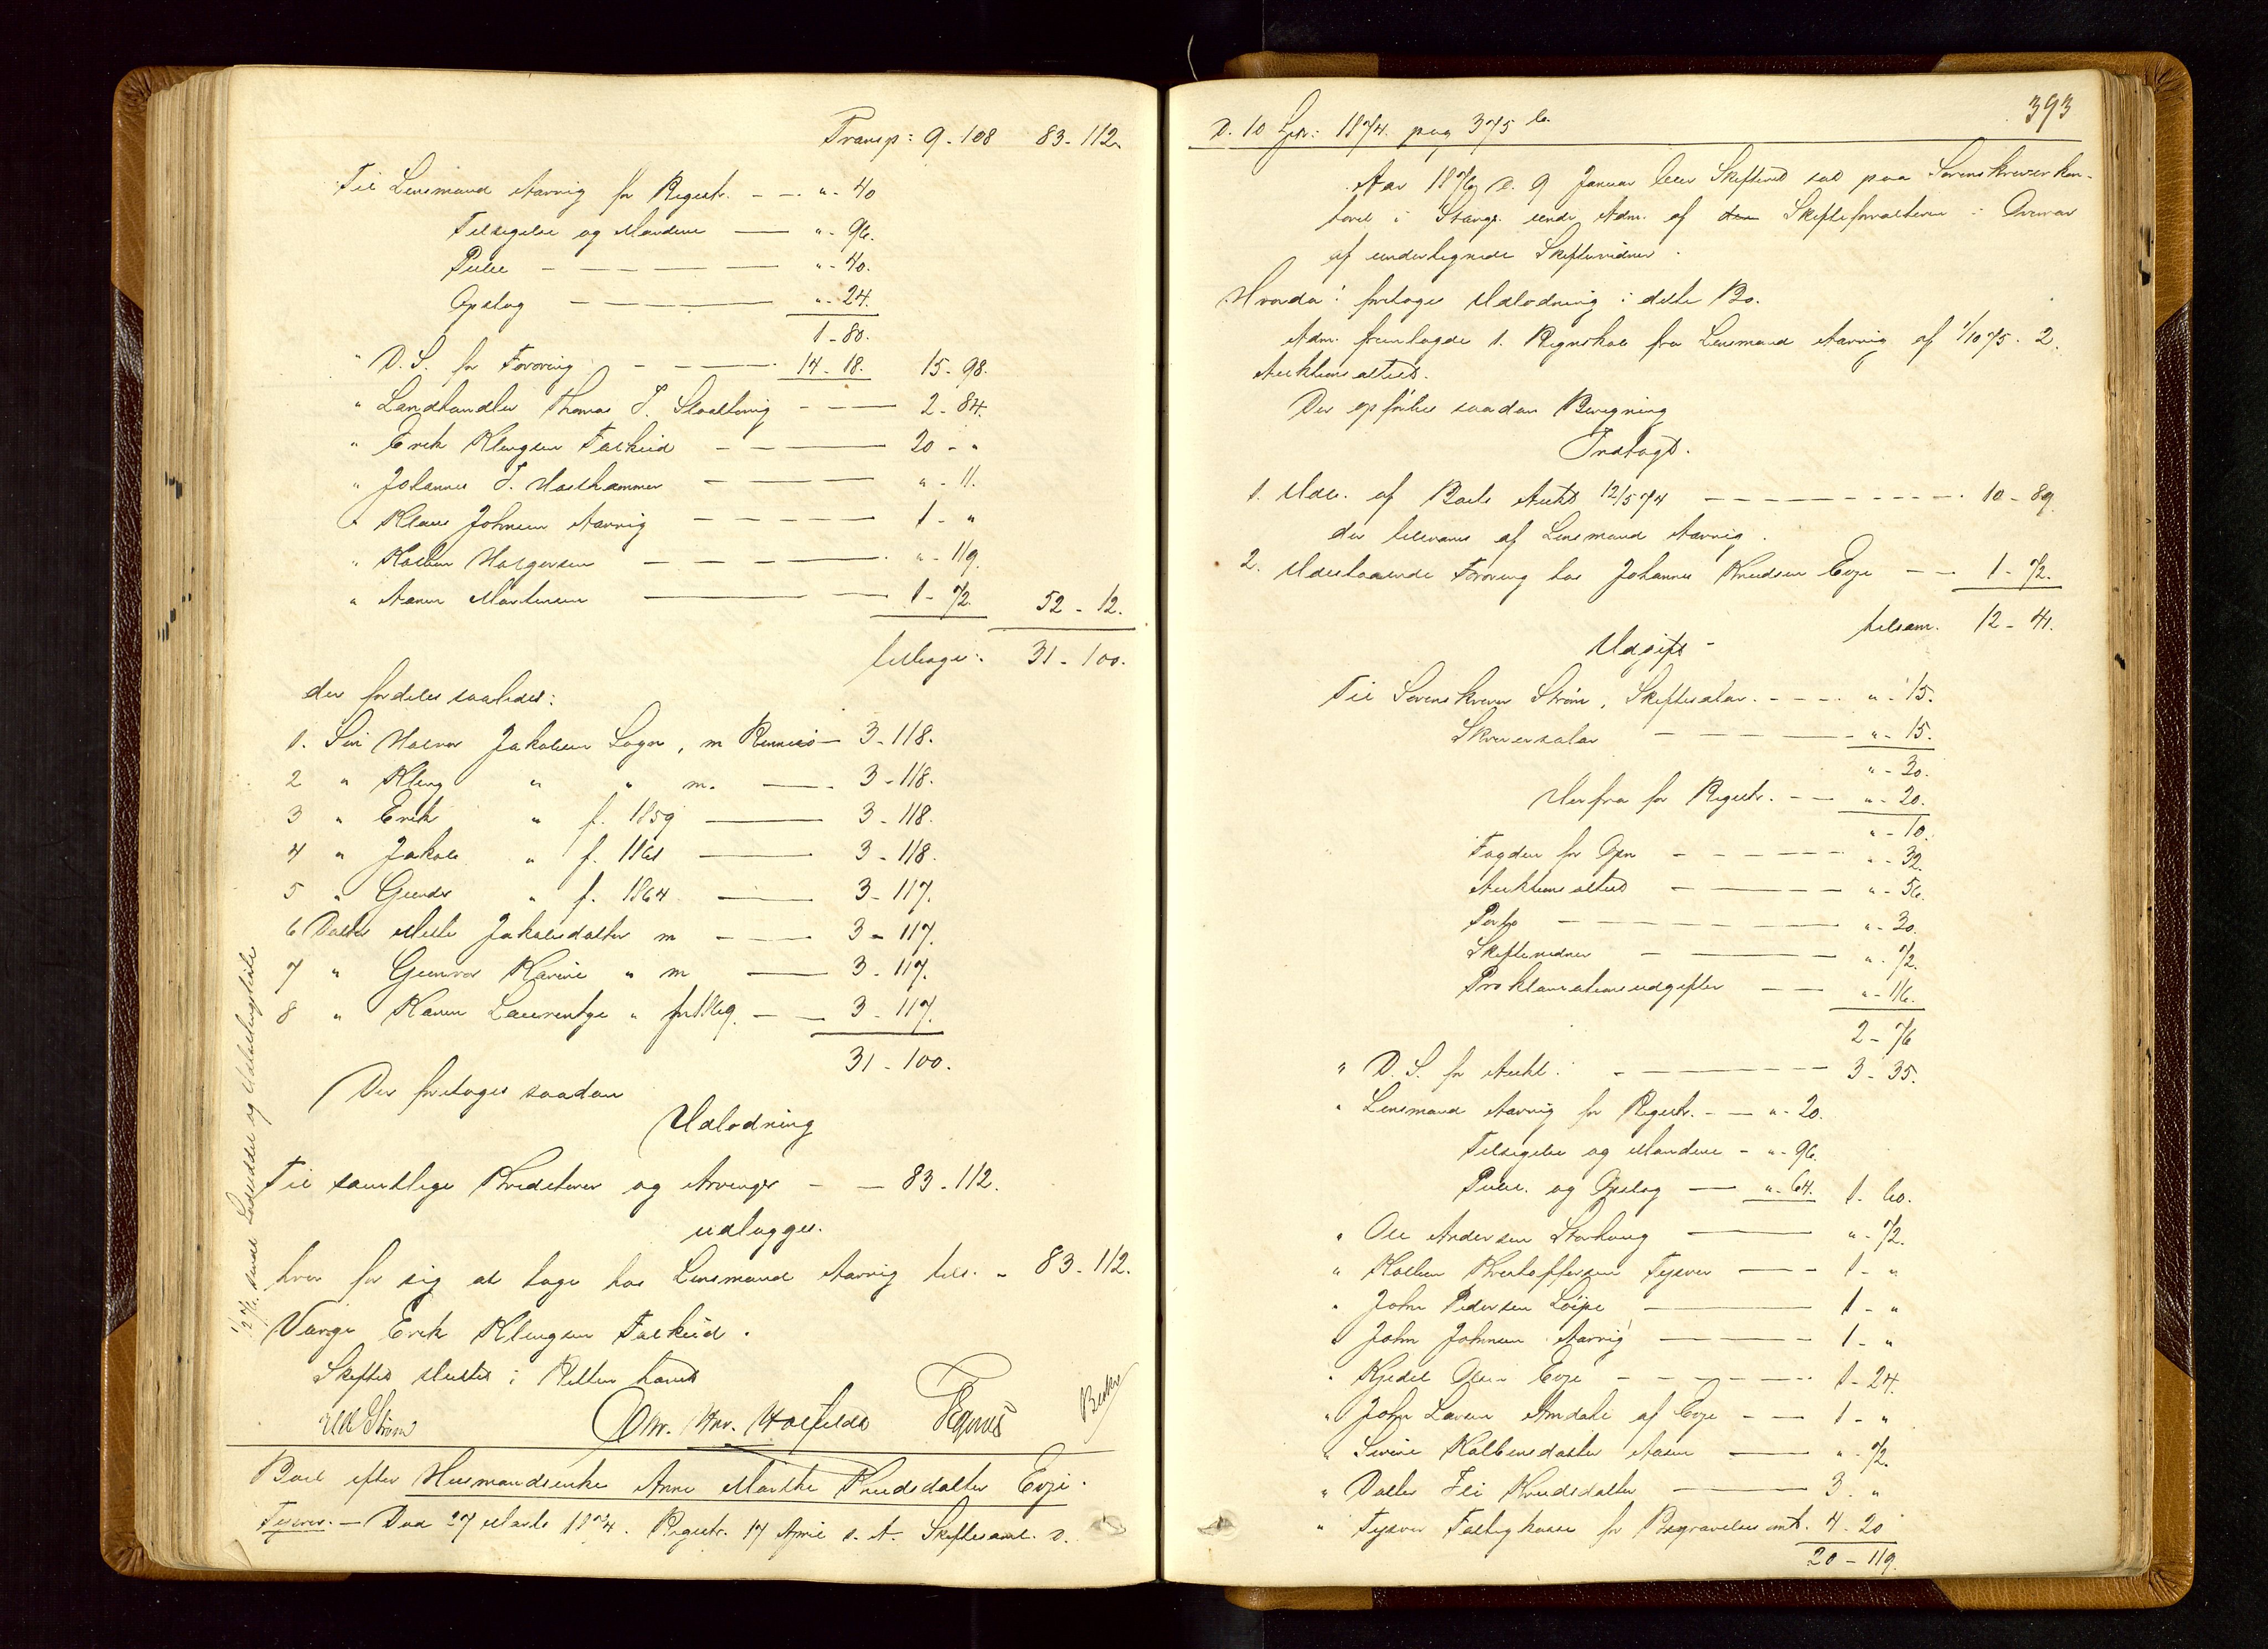 Transp: 9 - 108 83 - 112.
Til Lensmand Aarvig for Registr. — „ - 40
Tilsigelse og Mændene — „ - 96.
Pulie — „ - 40.
Opslag — „ - 24.
1 - 80.
„ D. S. for Fordring — 14 - 18. 15 - 98.
„ Landhandler Thomas T. — 2 - 84.
„ Erik Klengsen Falkeid — 20 - „
„ Johannes T. — „ - 11.
„ Klaus Johnsen Aarvig — 1 - „
„ Kolben Halgersen — „ - 119.
„ Aanen Mortensen — 1 - 72. 52 - 12.
tilbage: 31 - 100.
der fordeles saaledes:
1. Søn Halvor Jakobsen Laga, m Rennesø — 3 - 118.
2 „ Kleng „ „ m. — 3 - 118.
3 „ Erik „ f. 1859 — 3 - 118.
4 „ Jakob „ f. 1861 — 3 - 118.
5 „ Gunder „ f. 1864 — 3 - 117.
6 Datter Malli Jakobsdatter m — 3 - 117.
7 „ Gunvor Karine „ m — 3 - 117.
8 „ Karen Laurentze „ f. 1869. — 3 - 117.
31 - 100.
Der foretages saadan
Udlodning
Til samtlige Kreditorer og Arvinger — 83 - 112.
udlægges.
hver for sig at tage hos Lensmand Aarvig tils. „ 83 - 112.
Værge Erik Klengsen Falkeid.
Skiftet sluttet i Retten hævet
Strøm Chr. Hnr.
Boet efter Husmandsenke Anne Marthe Knudsdatter Evje.
Tysvær. — Død 27 Marts 1874. Registr. 17 April s. A. Skiftesaml. d.
393
D. 10 1874. pag 375 b.
Aar 1876 d. 9 Januar blev Skifteret sat paa Sorenskriverkon-
toret i Stavgr. under Adm. af den Skifteforvalteren i Overvær
af undertegnede Skiftevidner.
Hvorda: foretages Udlodning i dette Bo.
Adm. fremlagde 1. Regnskab fra Lensmand Aarvig af 1/10 75. 2.
Auktionsattest.
Der opførtes saadan Beregning
Indtægt.
1. Udb. af Boets Aukt 12/5 74 — 10 - 89.
der tilsvares af Lensmand Aarvig.
2. Udestaaende Fordring hos Johannes Knudsen Evje — 1 - 72.
tilsam. 12 - 41.
Udgift -
Til Sorenskriver Strøm, Skiftesalær. — „ - 15.
Skriversalær — „ - 15.
„ - 30.
Herfra for Registr. — „ - 20.
„ - 10.
Fogden for Opn — „ - 32.
Auktionsattest — „ - 56.
Porto — „ - 30.
Skiftevidner — „ - 72.
Proklamationsudgifter — „ - 116.
2 - 76
„ D. S. for Aukt. — 3 - 35.
„ Lensmand Aarvig for Registr. — „ - 20.
Tilsigelse og Mændene - „ - 96.
Pulie. og Opslag — „ - 64. 1 - 60.
„ Ole Andersen Storhaug — „ - 72.
„ Kolben Kristoffersen Tysvær — 1 - „
„ John Pedersen — 1 - „
„ John Johnsen Aarvig — 1 - „
„ Kjedel Olsen Evje — 1 - 24.
„ John Larsen Amdale af Evje — 1 - „
„ Serine Kolbensdatter Aasen — „ - 72.
„ Datter Knudsdatter — 3 - „
„ Tysvær Fattigkasse for Begravelsesomk. 4 - 20
20 - 119.